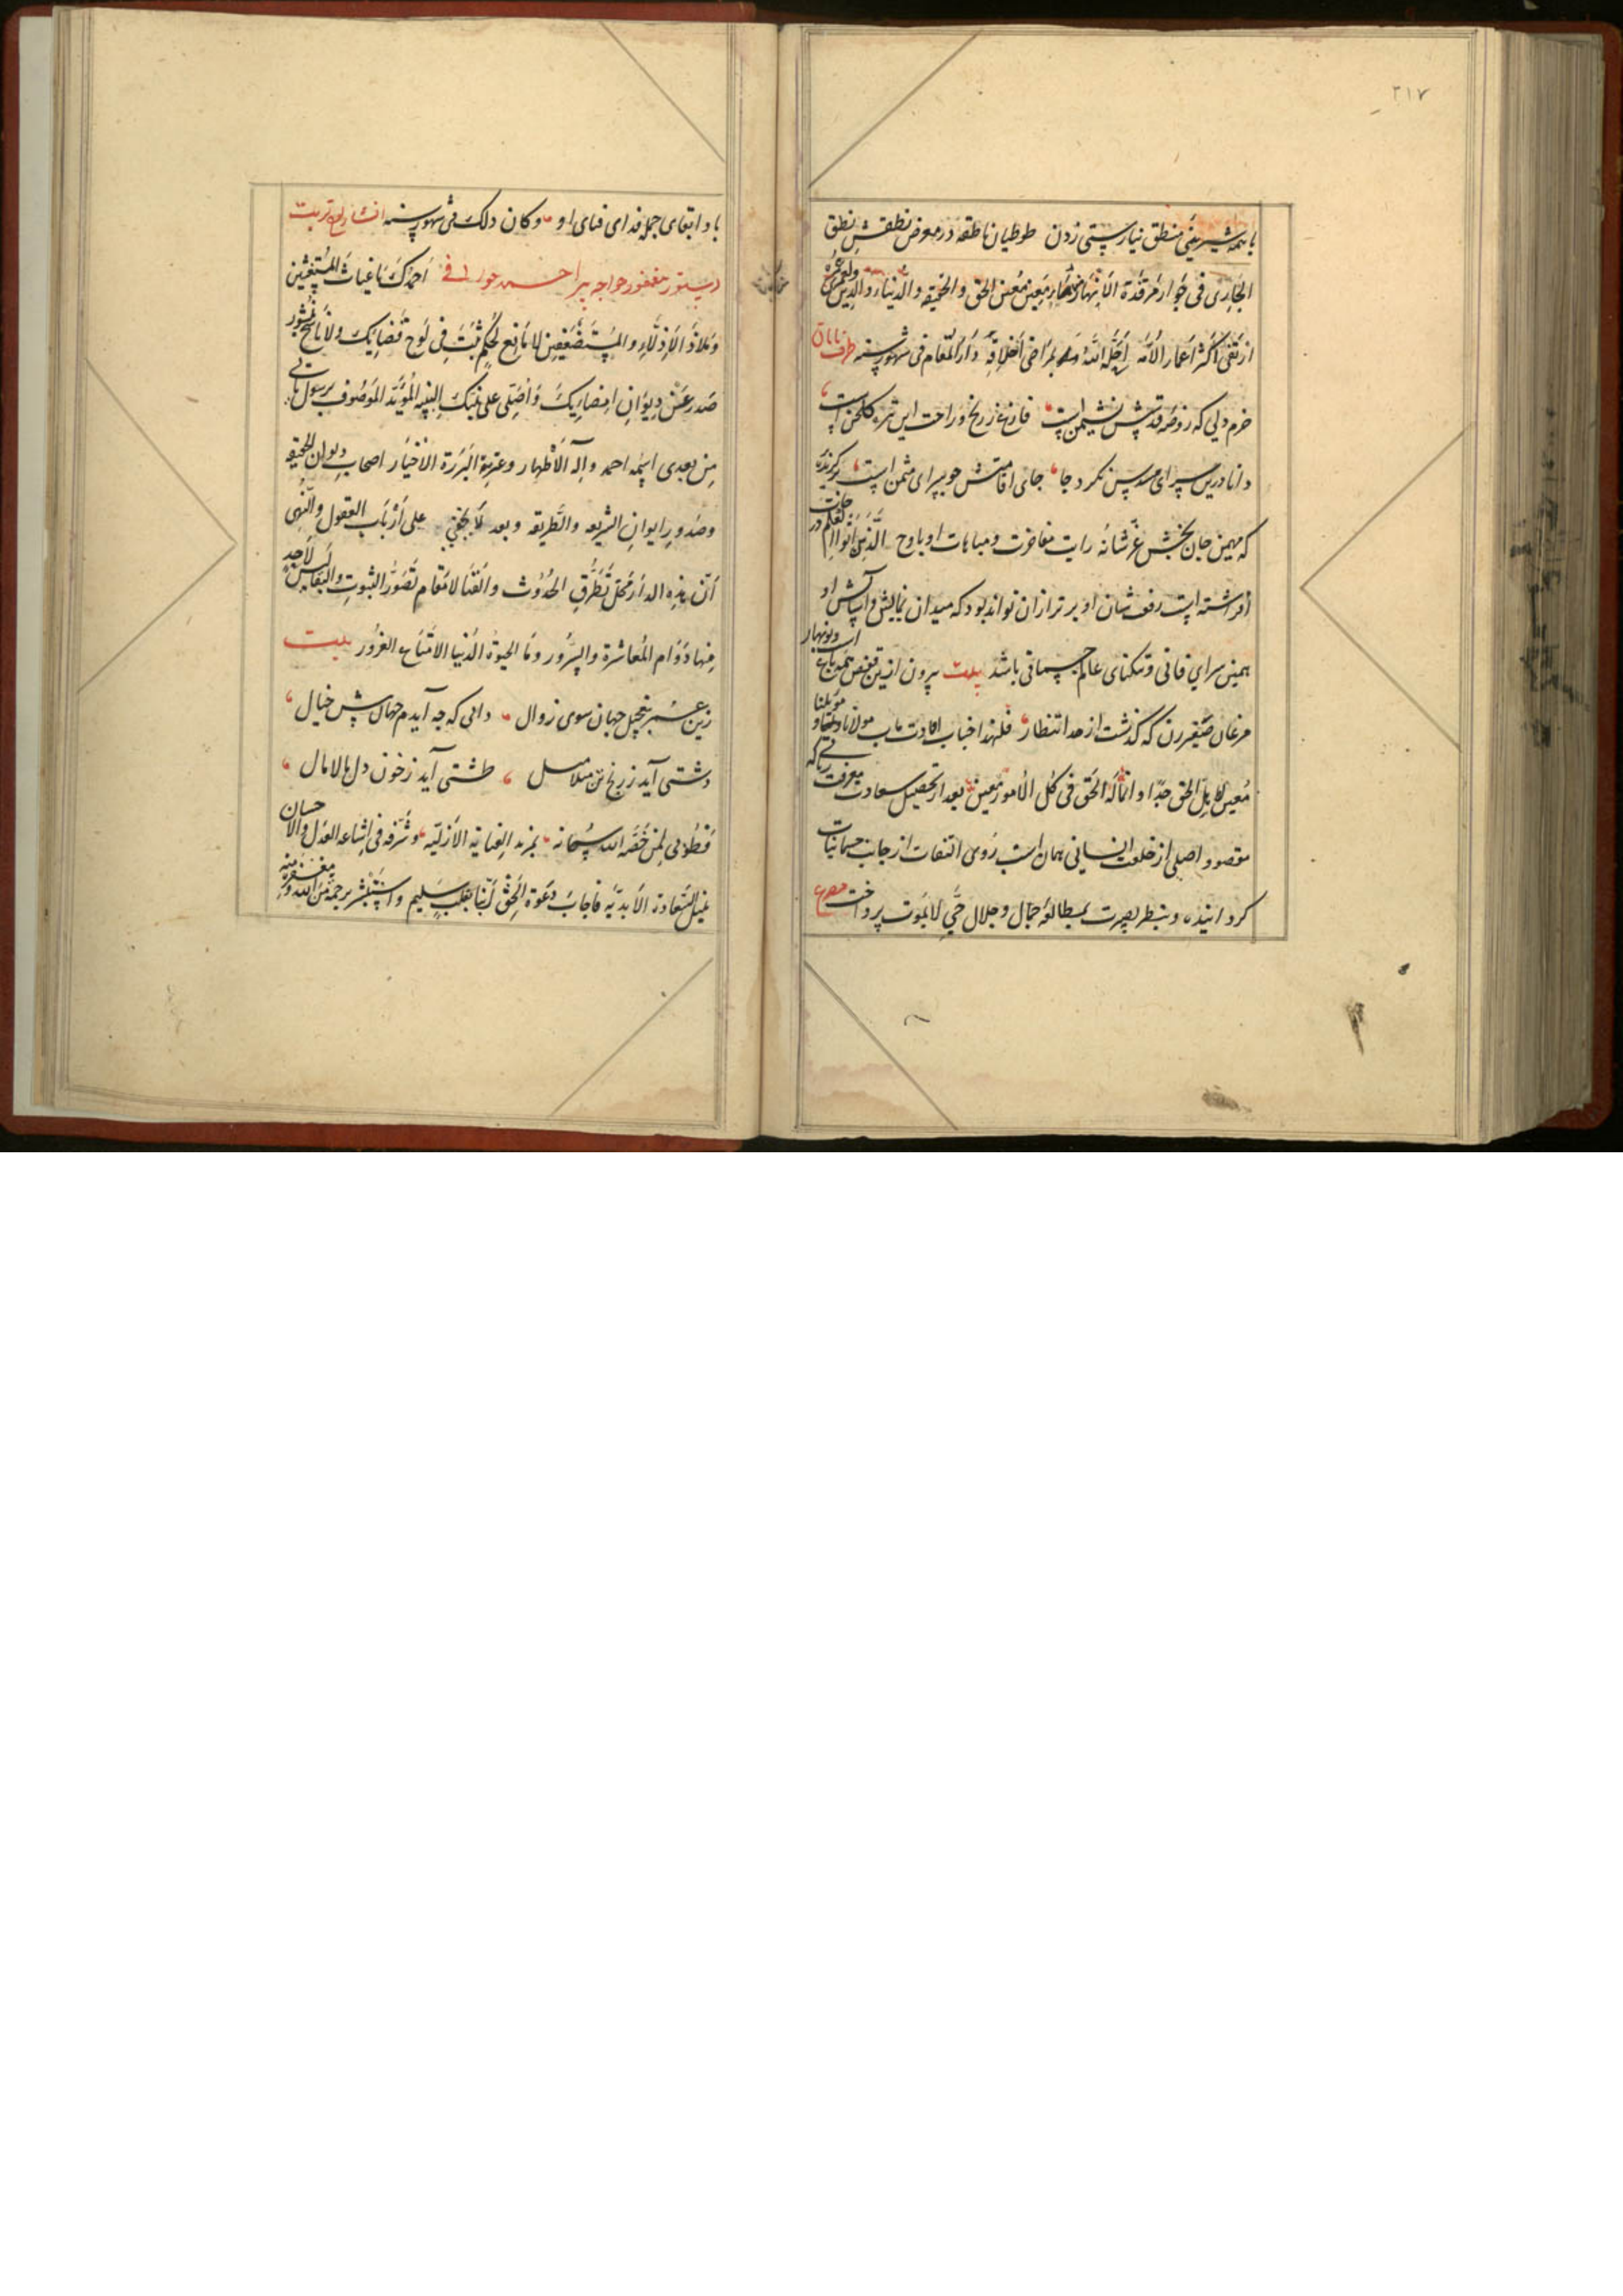 ٢١٧
با همه شیرینی منطق نیارستی زدن طوطیان ناطقه در معرض نطقش نطق
الجاری فی جوار مرقدة الانهار معین معین الحق والحقیقه والدنیا والدین
ارتقی اکثر اعمار الأمه احله الله بمراضی اخلاقه دار المقام فی شهور سنه
خرم دلی که روضه قدسش نشیمن است فارغ ز رنج و راحت این تیره گلخن است
دانا درین سرای مسدس نکرد جا جای اقامتش چو سرای مثمن است
که مهیمن جان بخش عز شانه رایت مفاخرت و مباهات او باوج الذین اتوا العلم درجات
افراشته است رفعت شان او برتر از آن تواند بود که میدان نمایش و آسایش او
همین سرای فانی و تنگنای عالم جسمانی باشد بیت بیرون ازین قفص همه باغست و نوبهار
مرغان صفیر زن که گذشت از حد انتظار فلهذا جناب افادت ماب مولانا
معین کاهل الحق جدا و انما له الحق فی کل الامور معین بعد از تحصیل سعادت معرفت ربانی که
مقصود اصلی از خلعت انسانی همان است روی التفات از جانب جسمانیات
گردانیده و بنظر بصیرت بمطالعه جمال و جلال حی لایموت پرداخت مصرع
باد ابقای جمله فدای فنای او وکان ذلک فی شهور سنه انشاء لوح تربت
دستور مغفور خواجه پیر احمد خوافی احمدک یا غیاث المستغیثین
وملاذ الاذلاء والمستضعفین لا مانع لحکم ثبت فی لوح قضائک ولا ناسخ لمنشور
صدر عن دیوان امضائک واصلی علی نبیک النبیه المؤید الموصوف برسول یأتی
من بعدی اسمه احمد وآله الأطهار وعترته البررة الاخیار اصحاب دیوان الحقیقه
وصدور ایوان الشریعه والطریقه وبعد لا یخفی علی ارباب العقول والنهی
ان هذه الدار محل تطرق الحدوث والفنا لا مقام تصور الثبوت والبقا لیس لاحد
منها دوام المعاشرة والسرور وما الحیوة الدنیا الا متاع الغرور بیت
زین عشر بتعجیل جهان سوی زوال دانی که چه آیدم جهان پیش خیال
دشتی آید ز رنج تن مالامال طشتی آید ز خون دل مالامال
فطوبی لمن خصه الله سبحانه بمزید العنایة الازلیه وشرفه فی اشاعة العدل والاحسان
بنیل السعادة الابدیه فاجاب دعوة الحق لبنا بقلب سلیم واستبشر برحمة من الله ومغفرة منه